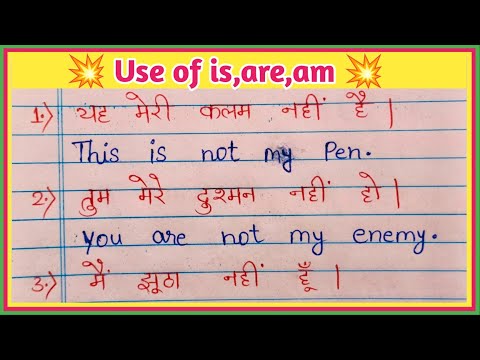 💥 Use of is,are,am 💥
1.) यह मेरी कलम नहीं है |
This is not my Pen.
2.) तुम मेरे दुश्मन नहीं हो |
You are not my enemy.
3.) मैं झूठा नहीं हूँ |